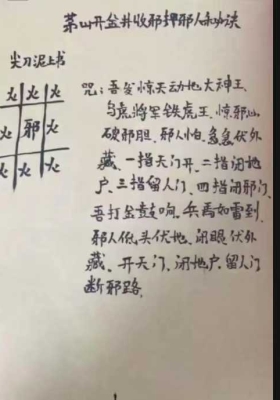 茅山开盆井收邪押邪人诀
尖刀泥上书
火 火 火
火 邪 火
火 火 火
咒:吾发惊天动地大神王、
乌虎将军铁虎王、惊邪
破邪胆、邪人怕、急急伏外
藏、一指天门开、二指闭地
户、三指留人门、四指闭邪门、
吾打盆鼓响、兵马如雷到、
邪人低头伏地、闭眼伏外
藏、开天门、闭地户、留人门
断邪路、